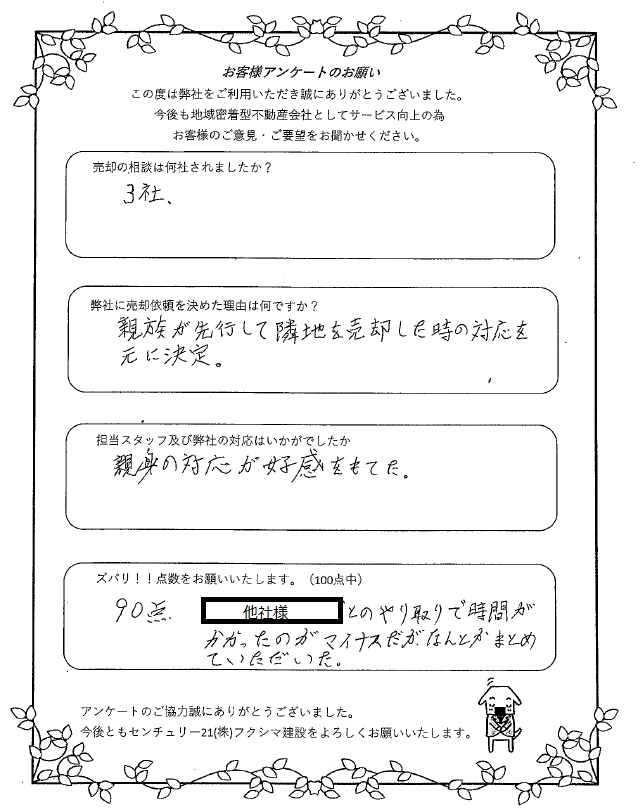 お客様アンケートのお願い
この度は弊社をご利用いただき誠にありがとうございました。
今後も地域密着型不動産会社としてサービス向上の為
お客様のご意見・ご要望をお聞かせください。
売却の相談は何社されましたか？
3社、
弊社に売却依頼を決めた理由は何ですか？
親族が先行して隣地を売却した時の対応を
元に決定。
担当スタッフ及び弊社の対応はいかがでしたか
親身の対応が好感をもてた。
ズバリ！！点数をお願いいたします。（100点中）
90点 他社様 とのやり取りで時間が
かかったのがマイナスだが、なんとかまとめ
ていただいた。
アンケートのご協力誠にありがとうございました。
今後ともセンチュリー21(株)フクシマ建設をよろしくお願いいたします。